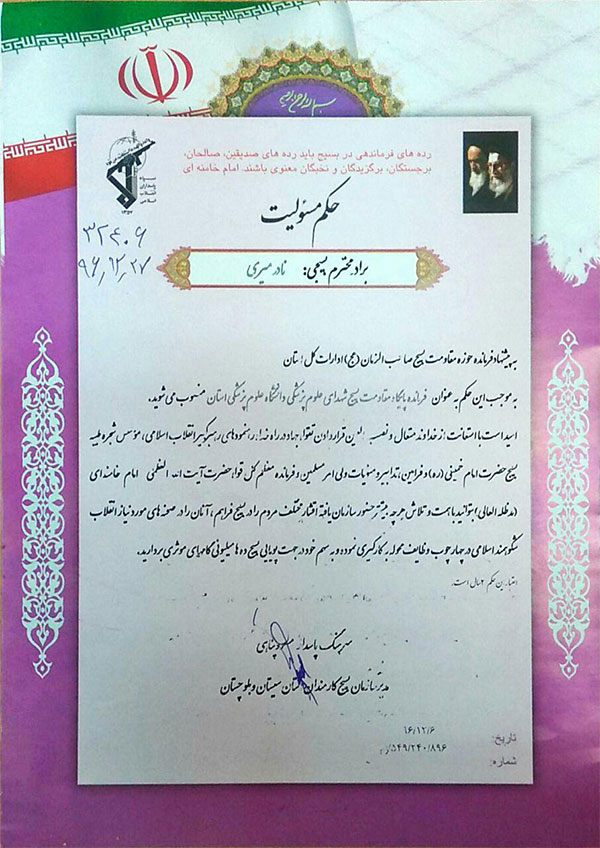 بسم الله الرحمن الرحیم
رده های فرماندهی در بسیج باید رده های صدیقین، صالحان،
برجستگان، برگزیدگان و نخبگان معنوی باشند. امام خامنه ای
سپاه
پاسداران
انقلاب
اسلامی
۱۳۵۷
حکم مسئولیت
۳۲۴۰۶
۹۶,۱۲,۲۷
برادر محترم بسیجی: نادر میری
به پیشنهاد فرمانده حوزه مقاومت بسیج صاحب الزمان (عج) ادارات کل استان
به موجب این حکم به عنوان فرمانده پایگاه مقاومت بسیج شهدای علوم پزشکی دانشگاه علوم پزشکی استان منصوب می شوید.
امید است با استعانت از خداوند متعال و نصب العین قرار دادن تقوا، جهاد در راه خدا، رهنمودهای رهبر کبیر انقلاب اسلامی، مؤسس شجره طیبه
بسیج حضرت امام خمینی (ره) و فرامین، تدابیر و منویات ولی امر مسلمین و فرمانده معظم کل قوا، حضرت آیت الله العظمی امام خامنه ای
(مدظله العالی) بتوانید با همت و تلاش هر چه بیشتر حضور سازمان یافته اقشار مختلف مردم را در بسیج فراهم، آنان را در صحنه های مورد نیاز انقلاب
شکوهمند اسلامی در چهارچوب وظایف محوله به کارگیری نموده و به سهم خود در جهت پویایی بسیج ده ها میلیونی گامهای موثری بردارید.
اعتبار این حکم ۲ سال است.
سرهنگ پاسدار پناهی
مدیر سازمان بسیج کارمندان استان سیستان و بلوچستان
تاریخ: ۹۶/۱۲/۶
شماره: ۵۴۹/۲۴۰/۸۹۶